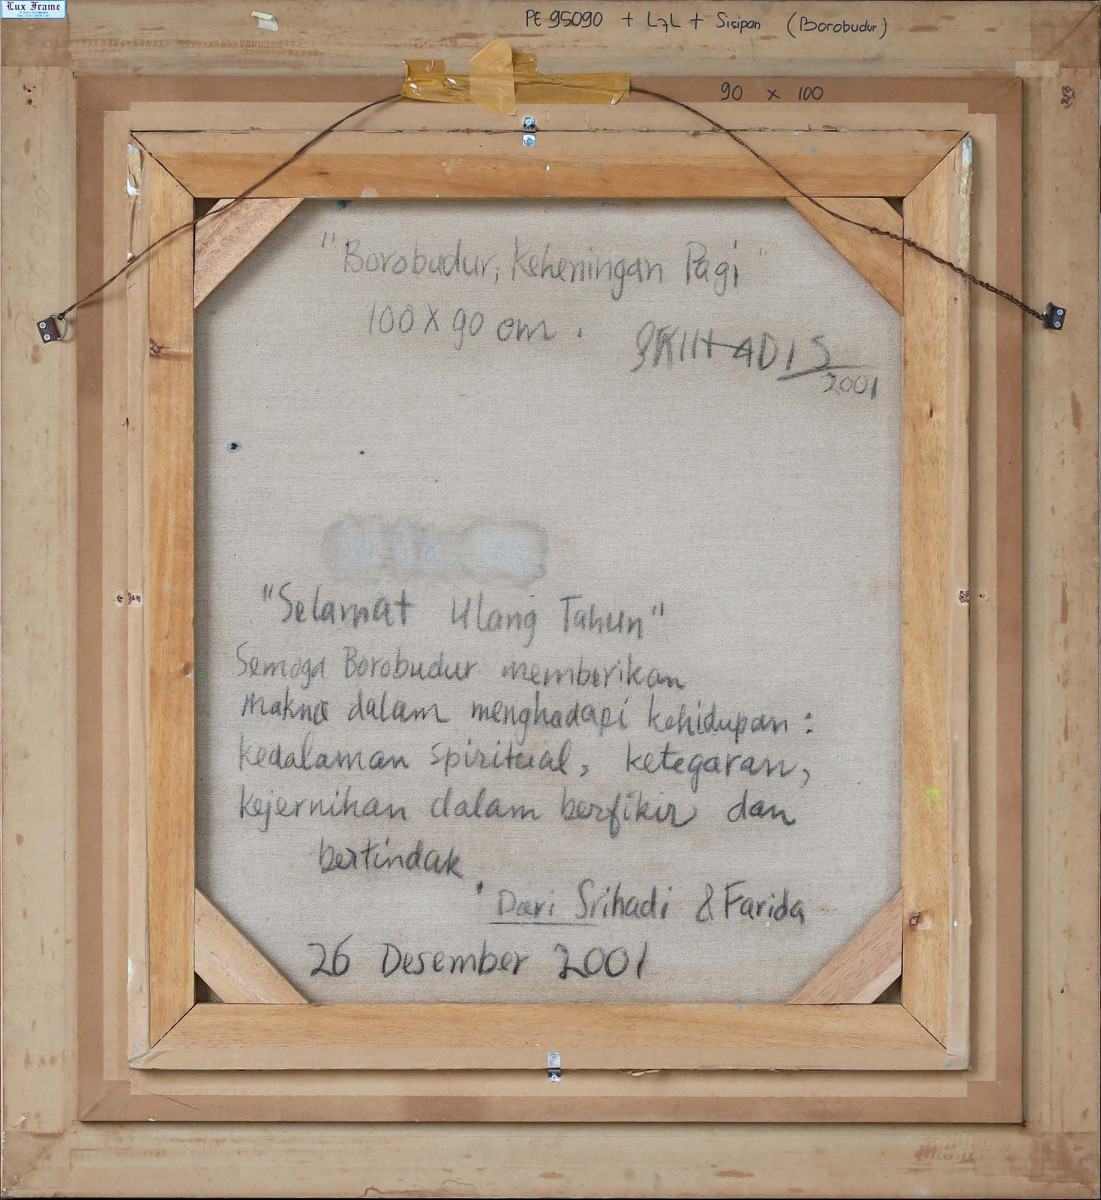 Lux Frame
PE 95090 + L7L + Sisipan (Borobudur)
90 x 100
"Borobudur, Keheningan Pagi"
100 X 90 cm.
SRIHADI S
2001
"Selamat Ulang Tahun"
Semoga Borobudur memberikan
makna dalam menghadapi kehidupan :
kedalaman spiritual, ketegaran,
kejernihan dalam berfikir dan
bertindak.
Dari Srihadi & Farida
26 Desember 2001